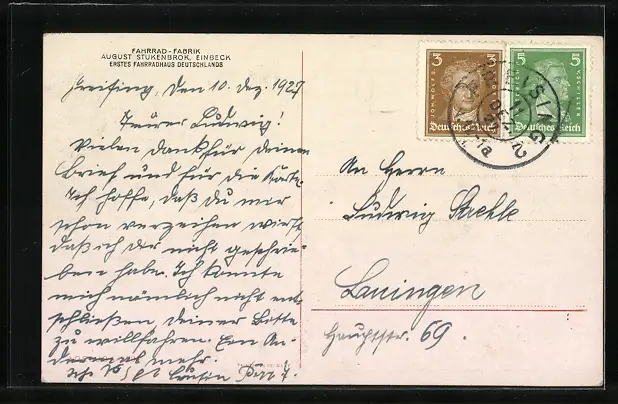 FAHRRAD-FABRIK
AUGUST STUKENBROK, EINBECK
ERSTES FAHRRADHAUS DEUTSCHLANDS
Greifing, den 10. Dez. 1927
Teurer Ludwig!
Vielen Dank für deinen
Brief und für die Karte.
Ich hoffe, daß du mir
schon verzeihen wirst
daß ich dir nicht geschrie-
ben habe. Ich konnte
mich nämlich nicht ent-
schließen deiner Bitte
zu willfahren. Ein An-
dermal mehr.
3
JOH.WOLFG.
Deutsches Reich
5
F.V.SCHILLER
Deutsches Reich
An Herrn
Ludwig Staehle
Lauingen
Hauptstr. 69.